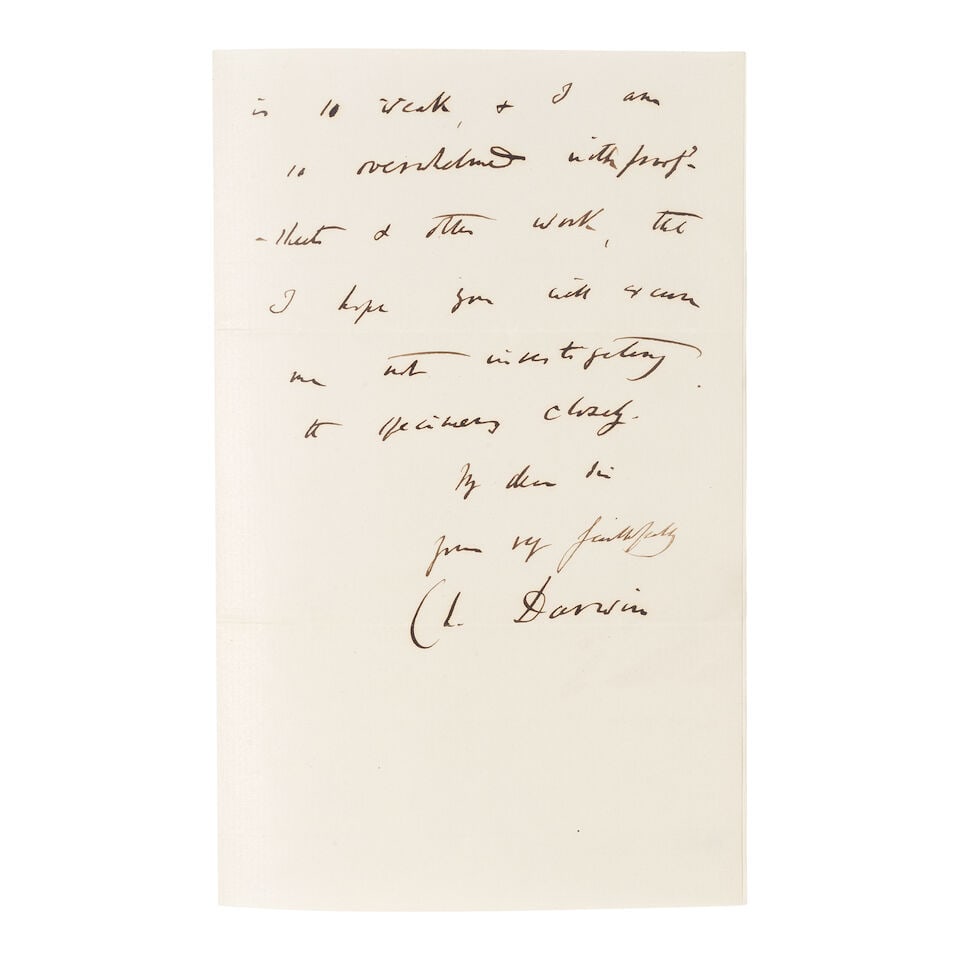 is so weak, & I am
so overwhelmed with proof-
-sheets & other work, that
I hope you will excuse
me not investigating
the specimens closely.
My dear Sir
yours very faithfully
Ch. Darwin